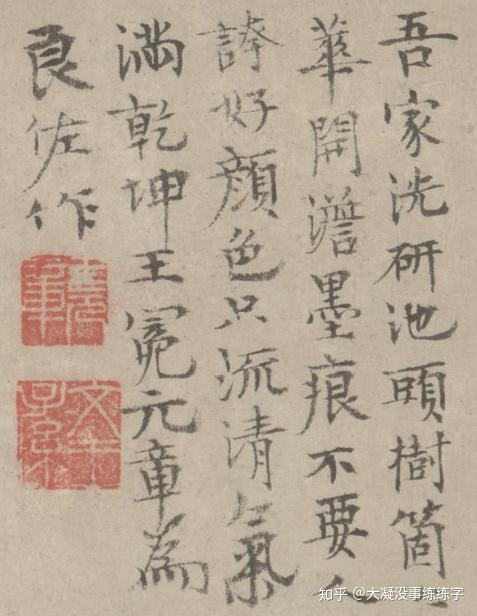 吾家洗研池頭樹箇
華開澹墨痕不要人
誇好顏色只流清氣
滿乾坤王冕元章為
良佐作
文王子孫
知乎 @大凝没事练练字